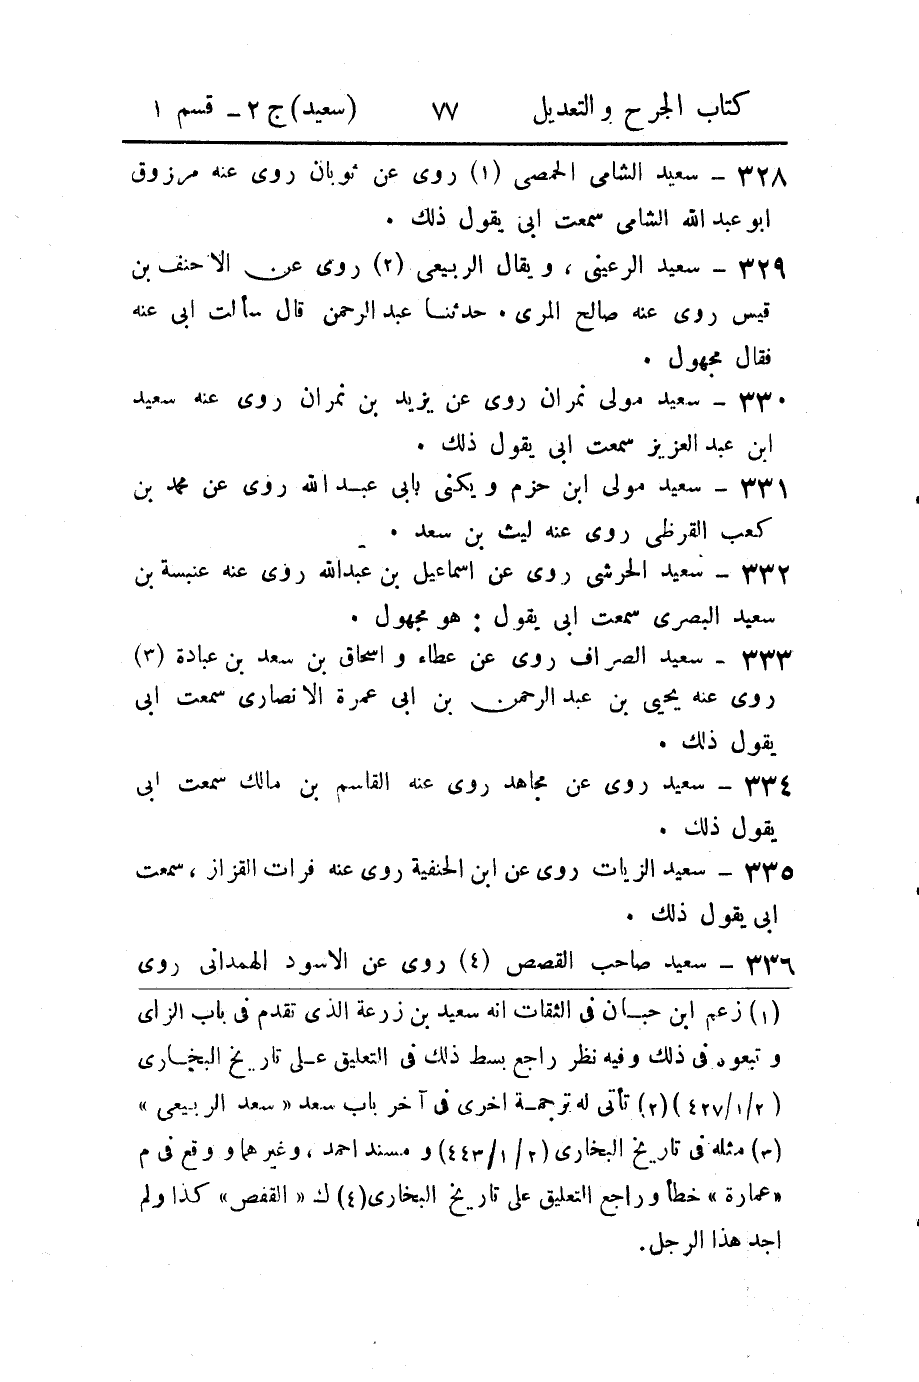 كتاب الجرح والتعديل ٧٧ (سعيد) ج ٢ - قسم ١
٣٢٨ - سعيد الشامى الحمصى (١) روى عن ثوبان روى عنه مرزوق
ابو عبد الله الشامى سمعت ابى يقول ذلك .
٣٢٩ - سعيد الرعينى ، ويقال الربيعى (٢) روى عن الاحنف بن
قيس روى عنه صالح المرى . حدثنا عبد الرحمن قال سألت ابى عنه
فقال مجهول .
٣٣٠ - سعيد مولى نمران روى عن يزيد بن نمران روى عنه سعيد
ابن عبد العزيز سمعت ابى يقول ذلك .
٣٣١ - سعيد مولى ابن حزم ويكنى بابى عبد الله روى عن محمد بن
كعب القرظى روى عنه ليث بن سعد .
٣٣٢ - سعيد الحرشى روى عن اسماعيل بن عبدالله روى عنه عنبسة بن
سعيد البصرى سمعت ابى يقول : هو مجهول .
٣٣٣ - سعيد الصراف روى عن عطاء و اسحاق بن سعد بن عبادة (٣)
روى عنه يحيى بن عبد الرحمن بن ابى عمرة الانصارى سمعت ابى
يقول ذلك .
٣٣٤ - سعيد روى عن مجاهد روى عنه القاسم بن مالك سمعت ابى
يقول ذلك .
٣٣٥ - سعيد الزيات روى عن ابن الحنفية روى عنه فرات القزاز ، سمعت
ابى يقول ذلك .
٣٣٦ - سعيد صاحب القصص (٤) روى عن الاسود الهمدانى روى
(١) زعم ابن حبان فى الثقات انه سعيد بن زرعة الذى تقدم فى باب الزاى
و تبعوه فى ذلك وفيه نظر راجع بسط ذلك فى التعليق على تاريخ البخارى
(٤٢٧/١/٢) (٢) تأتى له ترجمة اخرى فى آخر باب سعد « سعد الربيعى »
(٣) مثله فى تاريخ البخارى (٤٤٣/١/٢) و مسند احمد ، وغيرهما و وقع فى م
«عمارة» خطأ وراجع التعليق على تاريخ البخارى (٤) ك « القفص » كذا ولم
اجد هذا الرجل.